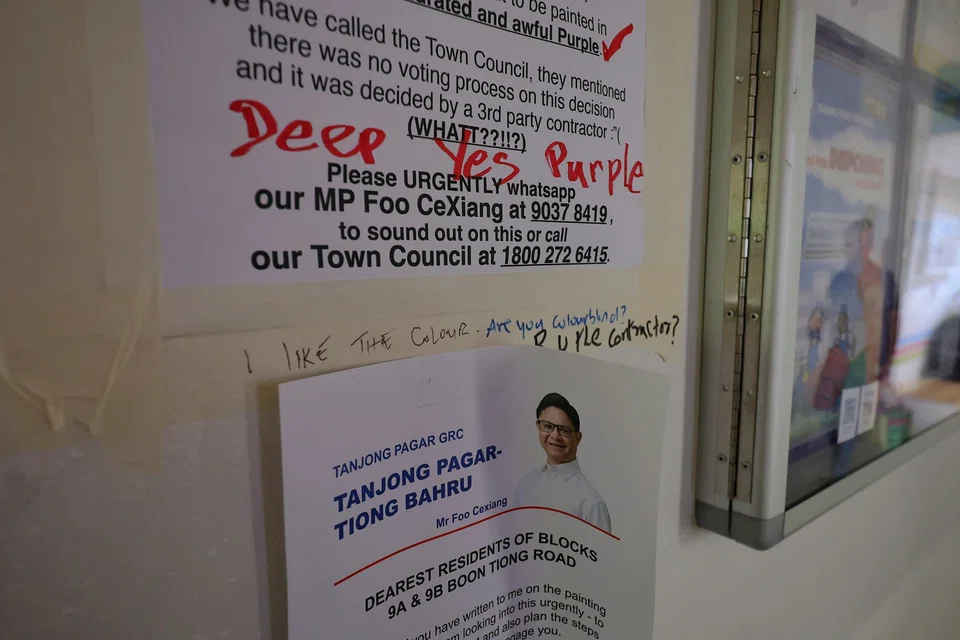 to be painted in
urated and awful Purple.
We have called the Town Council, they mentioned
there was no voting process on this decision
and it was decided by a 3rd party contractor :"(
(WHATT??!!?)
Deep Yes Purple
Please URGENTLY whatsapp
our MP Foo CeXiang at 9037 8419,
to sound out on this or call
our Town Council at 1800 272 6415.
I LIKE THE COLOUR. Are you colourblind?
R U the contractor?
TANJONG PAGAR GRC
TANJONG PAGAR-
TIONG BAHRU
Mr Foo Cexiang
DEAREST RESIDENTS OF BLOCKS
9A & 9B BOON TIONG ROAD
you have written to me on the painting
am looking into this urgently - to
and also plan the steps
engage you.